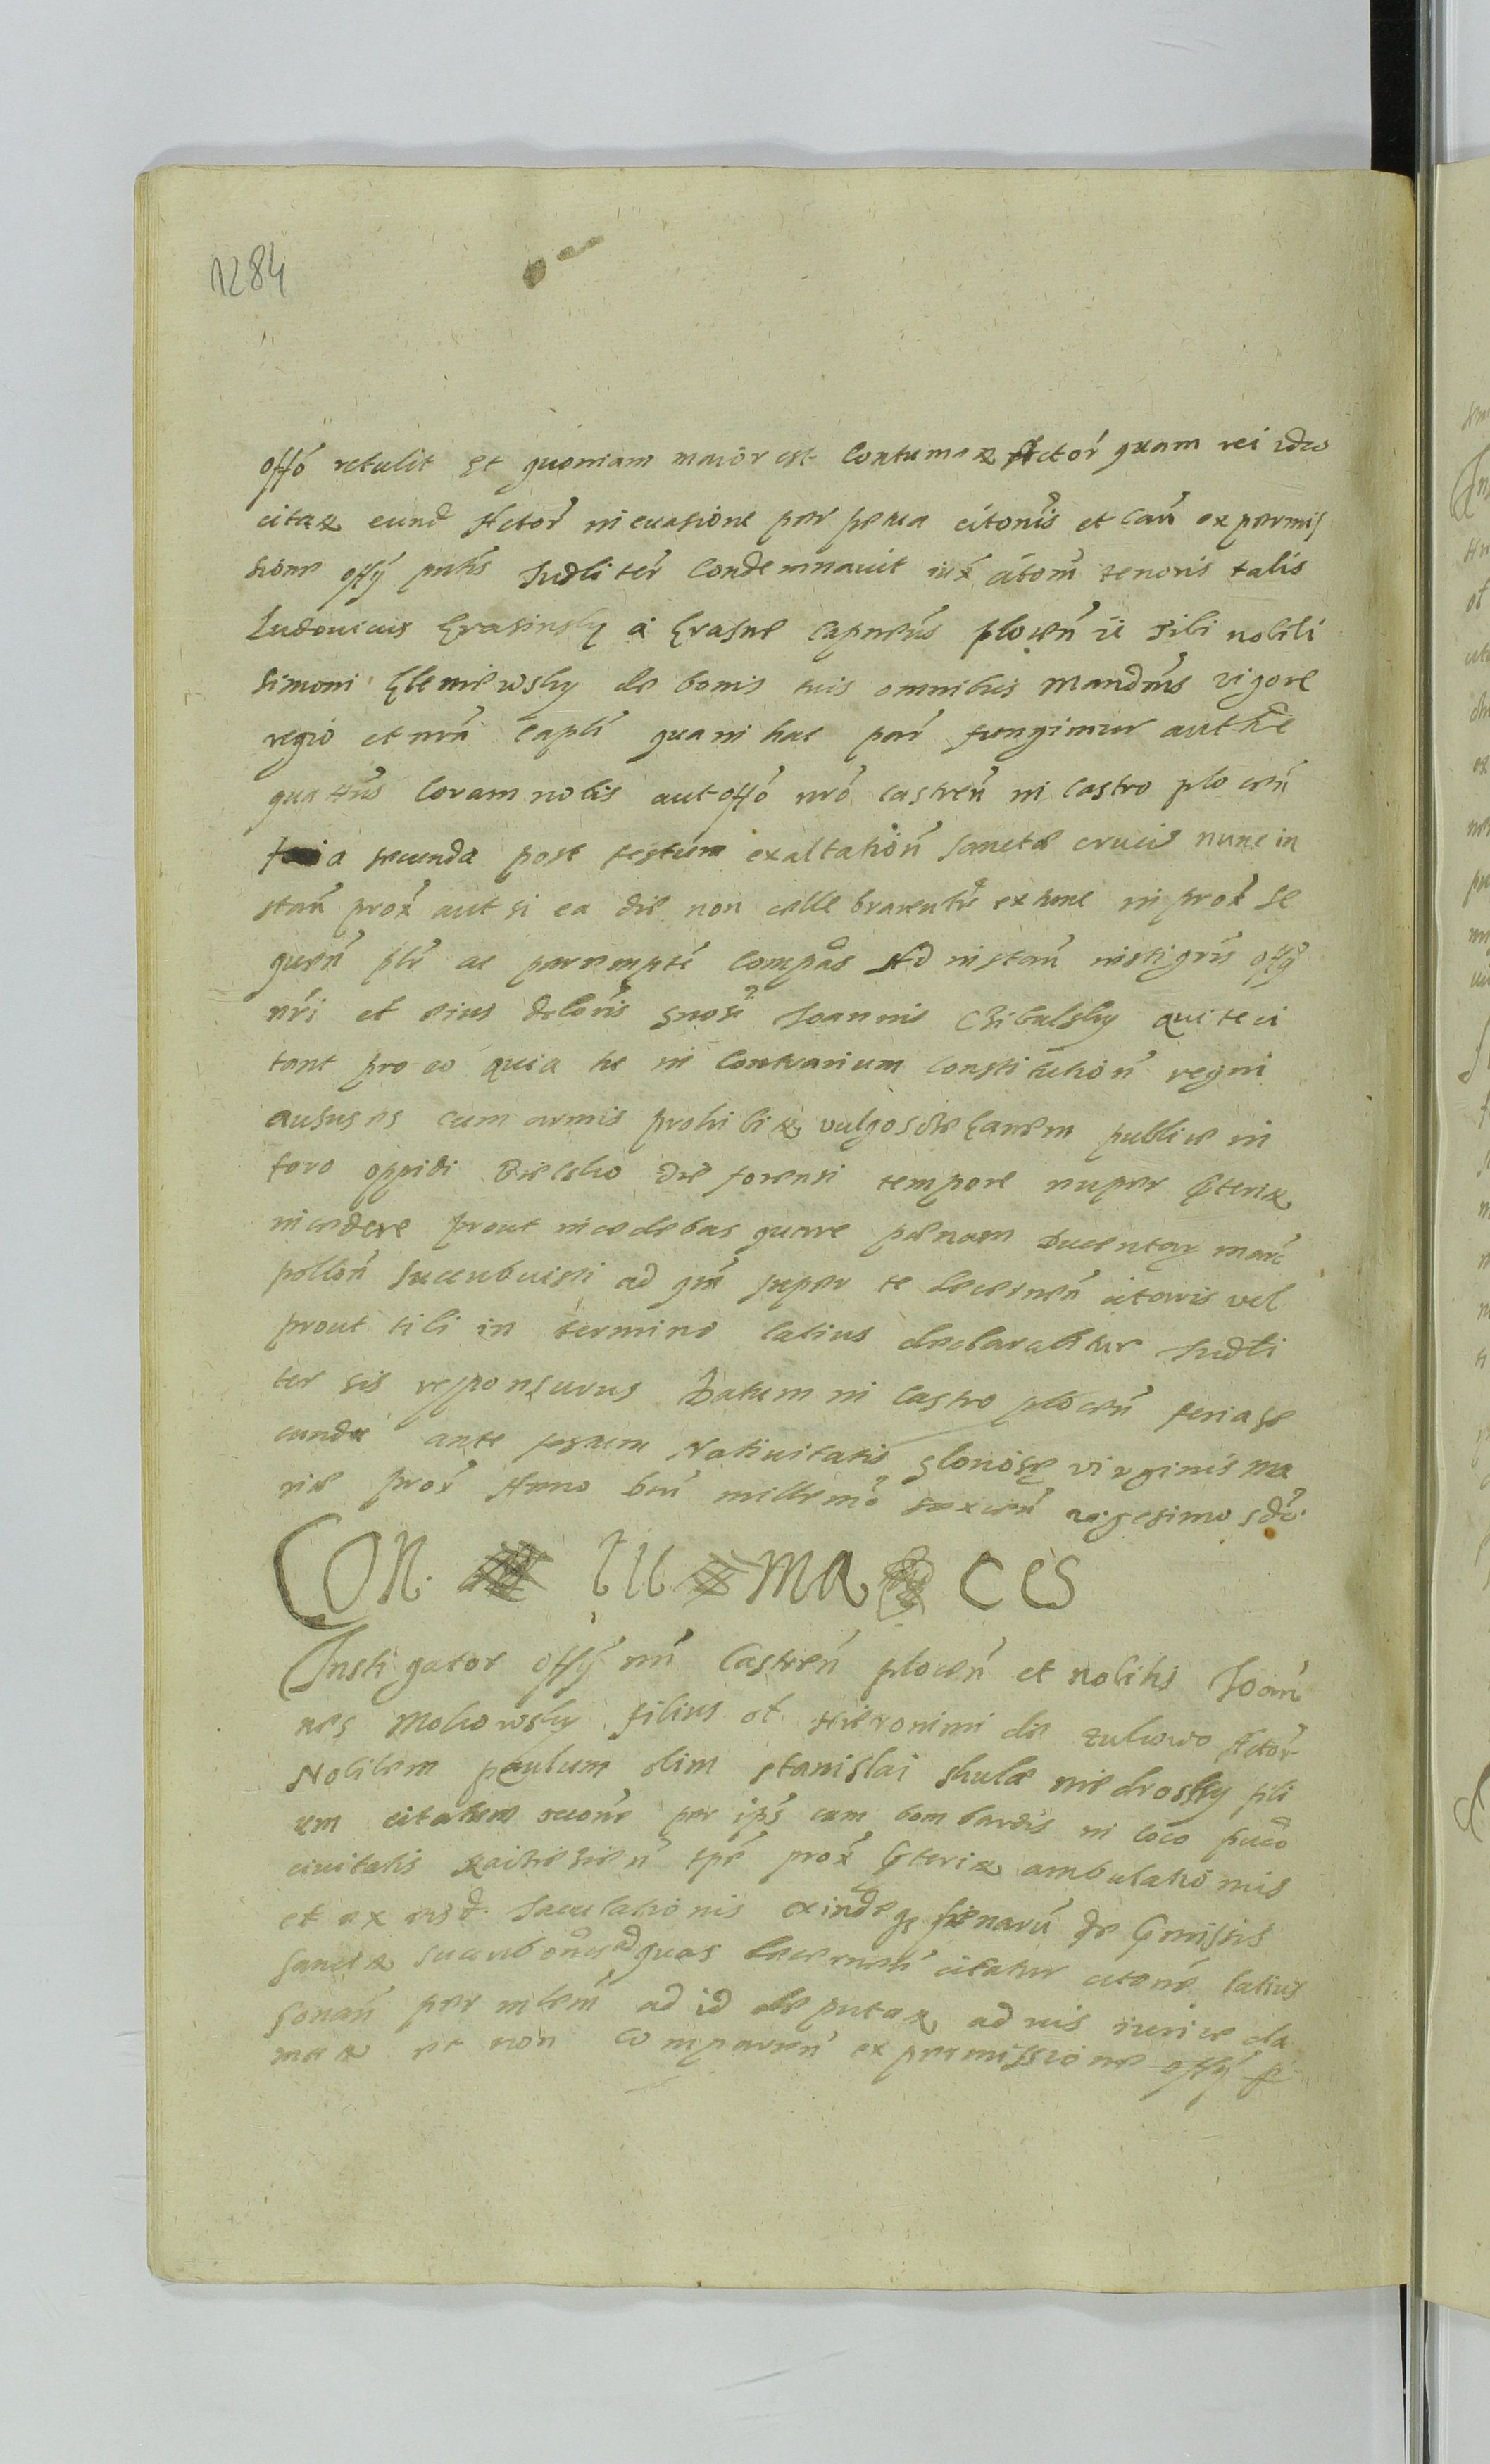 1284
offo retulit Et quoniam maior est Contumax Actor quam rei ideo
citatus eund Actor in euasione per paena citonis et Cau ex permis
sione offy pntis Judliter Condemnauit iux citom tenoris talis
Ludouicus Krasinsky a Krasne Capneus plocen Tibi nobili
Simoni Gleniewsky de bonis tuis omnibus Mandmus vigore
regio et nrn Capli qua in hac par fungimur authte
quattus Coram nobis aut offo nro Castren in Castro plocen
feria secunda post festum exaltation Sanctae crucis nunc in
stan prox aut si ea die non cellebrarentur ex tunc in prox se
quen plr ac parempte Compas Ad instan instigris offy
nri et eius delonis Gnosi Joannis Cibulsky qui te ci
tant pro eo quia tu in Contrarium Constitution regni
ausus es cum armis prohibitis vulgo strelanem publice in
foro oppidi Bielsko die forensi tempore nuper preterito
incedere prout incedebas quare paenam Ducentar marc
pollon succubuisti ad qua super te decernen citaris vel
prout tibi in termino latius declarabitur Judli
ter sis responsurus Datum in Castro plocen feria se
cunda ante festum Natiuitatis gloriosae virginis Ma
riae prox Anno Dni millemo sexcen vigesimo sdo.
CON TU MA CES
Instigator offy nri Castren plocen et nobilis Joan
nes Mokowsky filius ol Hieronimi de zukowo Actor
Nobilem paulum olim stanislai skulae niedrosky fili
um citatum racone per ips cum bombardis in loco puco
ciuitatis racizesien tpe prox preterito ambulationis
et ex eisd Jaculationis exindeq paenaru de praemissis
sancitus succubonis ad quas decernen citatur citone latius
sonan per mlem ad id deputatus ad uis iurice cla
matus et non Comparen ex permissione offy p